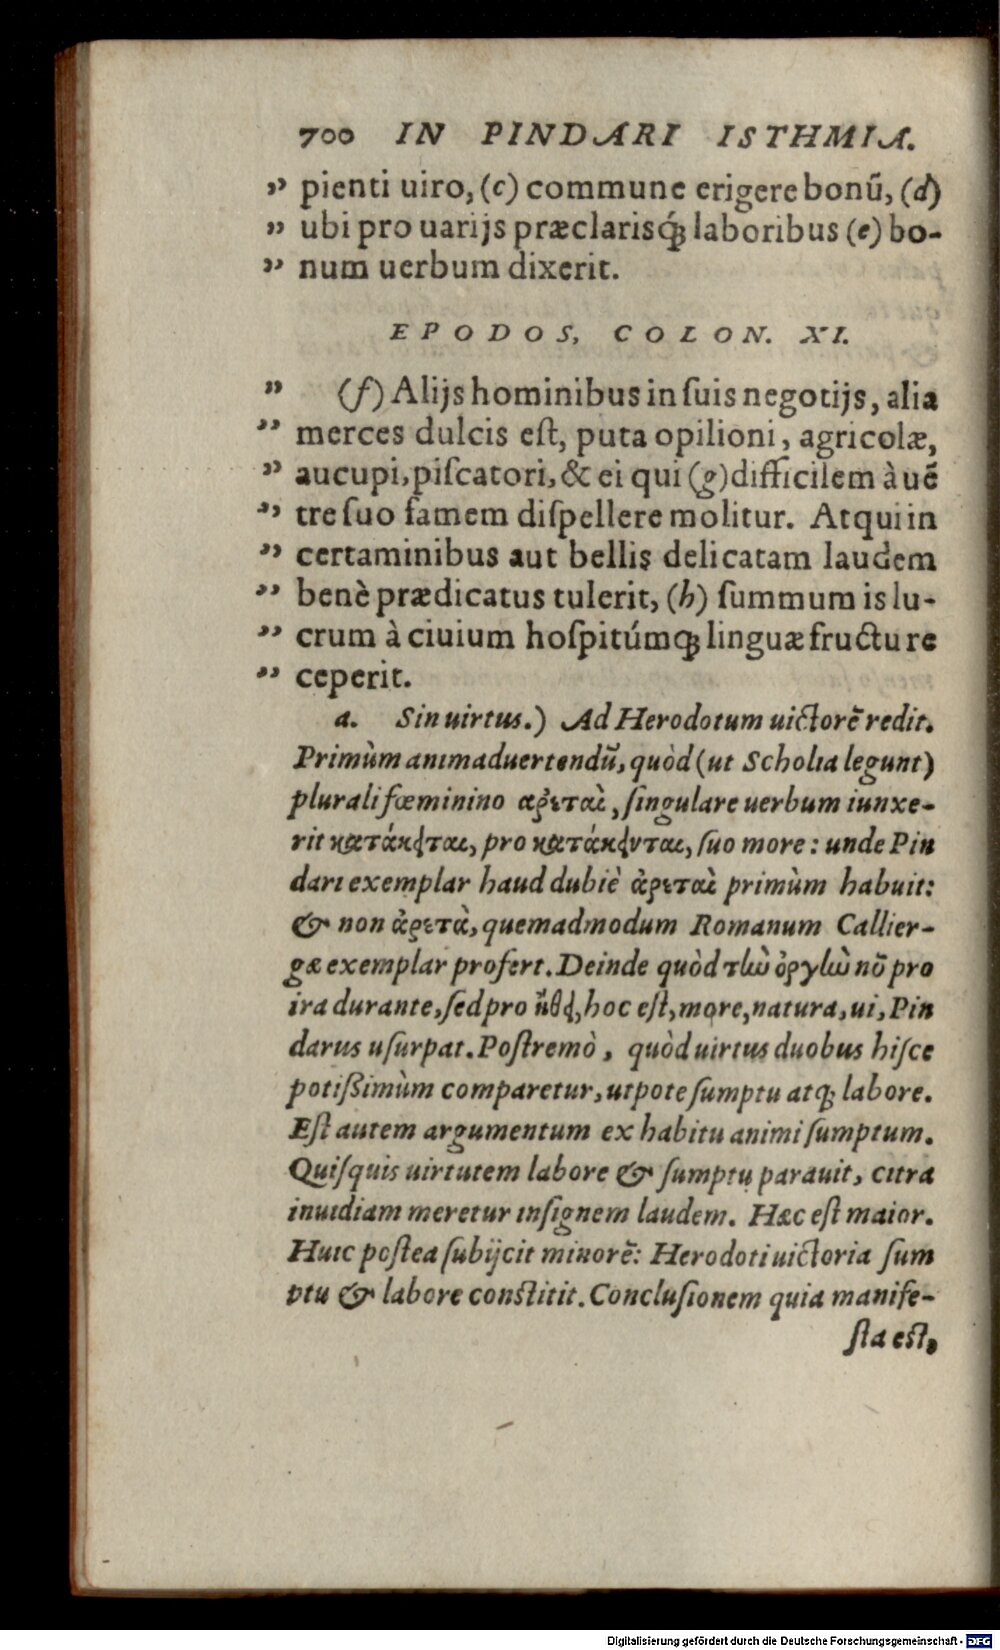 700 IN PINDARI ISTHMIA.
„ pienti uiro, (c) commune erigere bonũ, (d)
„ ubi pro uarijs præclarisq́; laboribus (e) bo-
„ num uerbum dixerit.
EPODOS, COLON. XI.
„ (f) Alijs hominibus in ſuis negotijs, alia
„ merces dulcis eſt, puta opilioni, agricolæ,
„ aucupi, piſcatori, & ei qui (g) difficilem à uẽ
„ tre ſuo famem diſpellere molitur. Atqui in
„ certaminibus aut bellis delicatam laudem
„ benè prædicatus tulerit, (h) ſummum is lu-
„ crum à ciuium hoſpitúmq; linguæ fructu re
„ ceperit.
a. Sin uirtus.) Ad Herodotum uictorẽ redit.
Primùm animaduertendũ, quòd (ut Scholia legunt)
plurali fœminino αρεταὶ, ſingulare uerbum iunxe-
rit κατάκειται, pro κατάκεινται, ſuo more: unde Pin
dari exemplar haud dubiè ἀρεταὶ primùm habuit:
& non ἀρετὰ, quemadmodum Romanum Callier-
gæ exemplar profert. Deinde quòd τὼ ὀργὼ nõ pro
ira durante, ſed pro ἤθει, hoc eſt, more, natura, ui, Pin
darus uſurpat. Poſtremò, quòd uirtus duobus hiſce
potiſsimùm comparetur, utpote ſumptu atq; labore.
Eſt autem argumentum ex habitu animi ſumptum.
Quiſquis uirtutem labore & ſumptu parauit, citra
inuidiam meretur inſignem laudem. Hæc eſt maior.
Huic poſtea ſubijcit minorẽ: Herodoti uictoria ſum
ptu & labore conſtitit. Concluſionem quia manife-
ſta eſt,
Digitalisierung gefördert durch die Deutsche Forschungsgemeinschaft - DFG